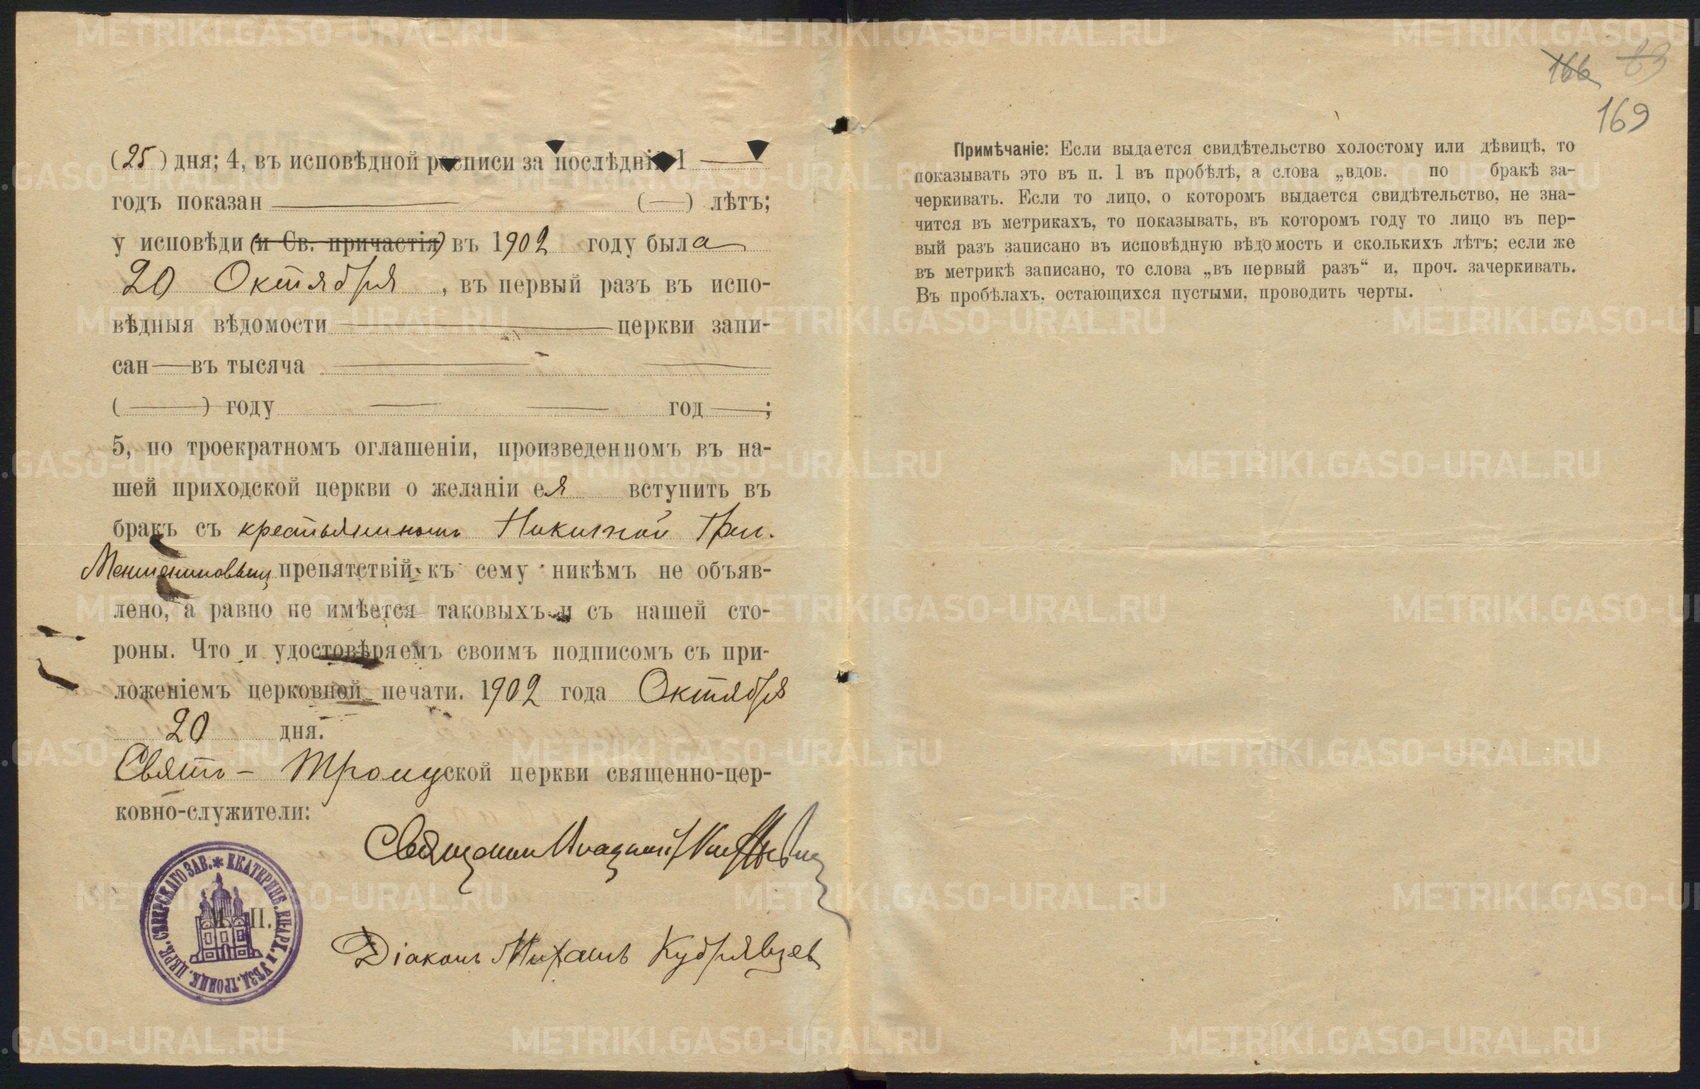 166 83
169
(25) дня; 4, въ исповѣдной росписи за послѣдній 1 ——
годъ показан —— (—) лѣтъ;
у исповѣди (и Св. причастія) въ 1902 году была
20 Октября, въ первый разъ въ испо-
вѣдныя вѣдомости —— церкви запи-
сан — въ тысяча ——
( —— ) году —— —— год ——;
5, по троекратномъ оглашеніи, произведенномъ въ на-
шей приходской церкви о желаніи ея вступить въ
бракъ съ крестьяниномъ Никитой Гри.
Меншениновымъ препятствій къ сему никѣмъ не объяв-
лено, а равно не имѣется таковыхъ и съ нашей сто-
роны. Что и удостовѣряемъ своимъ подписомъ съ при-
ложеніемъ церковной печати. 1902 года Октября
20 дня.
Свято-Троицкой церкви священно-цер-
ковно-служители:
Священникъ
М. П.
ЕКАТЕРИНБ. ЕПАРХ. И УѢЗД. ТРОИЦК. ЦЕРК. СѢВЕРСКАГО ЗАВ.
Діаконъ Михаилъ Кудрявцев
Примѣчаніе: Если выдается свидѣтельство холостому или дѣвицѣ, то
показывать это въ п. 1 въ пробѣлѣ, а слова „вдов. по бракѣ за-
черкивать. Если то лицо, о которомъ выдается свидѣтельство, не зна-
чится въ метрикахъ, то показывать, въ которомъ году то лицо въ пер-
вый разъ записано въ исповѣдную вѣдомость и сколькихъ лѣтъ; если же
въ метрикѣ записано, то слова „въ первый разъ“ и, проч. зачеркивать.
Въ пробѣлахъ, остающихся пустыми, проводить черты.
METRIKI.GASO-URAL.RU